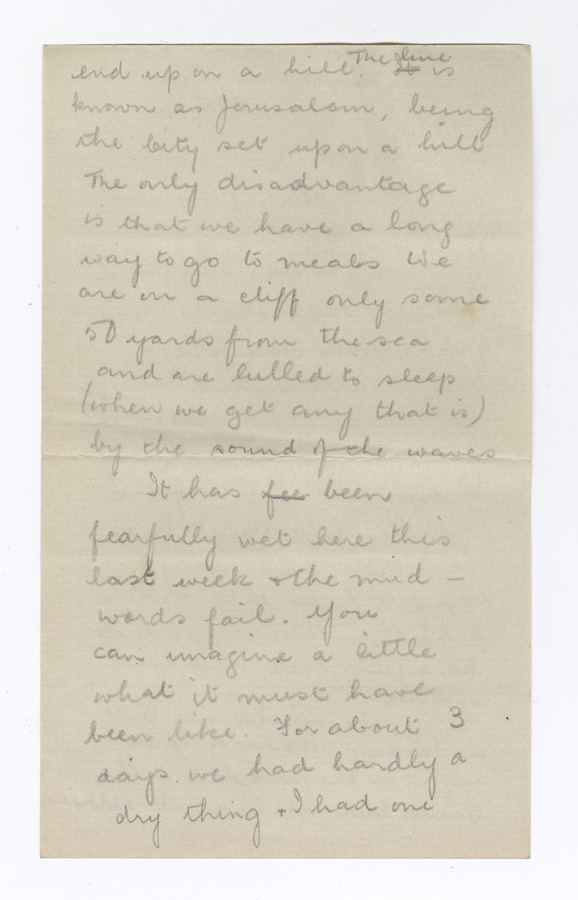 end up on a hill. The line is
known as Jerusalem, being
the City set upon a hill
The only disadvantage
is that we have a long
way to go to meals We
are on a cliff only some
50 yards from the sea
and are lulled to sleep
(when we get any that is)
by the sound of the waves
It has fee been
fearfully wet here this
last week & the mud –
words fail. You
can imagine a little
what it must have
been like. For about 3
days we had hardly a
dry thing & I had one